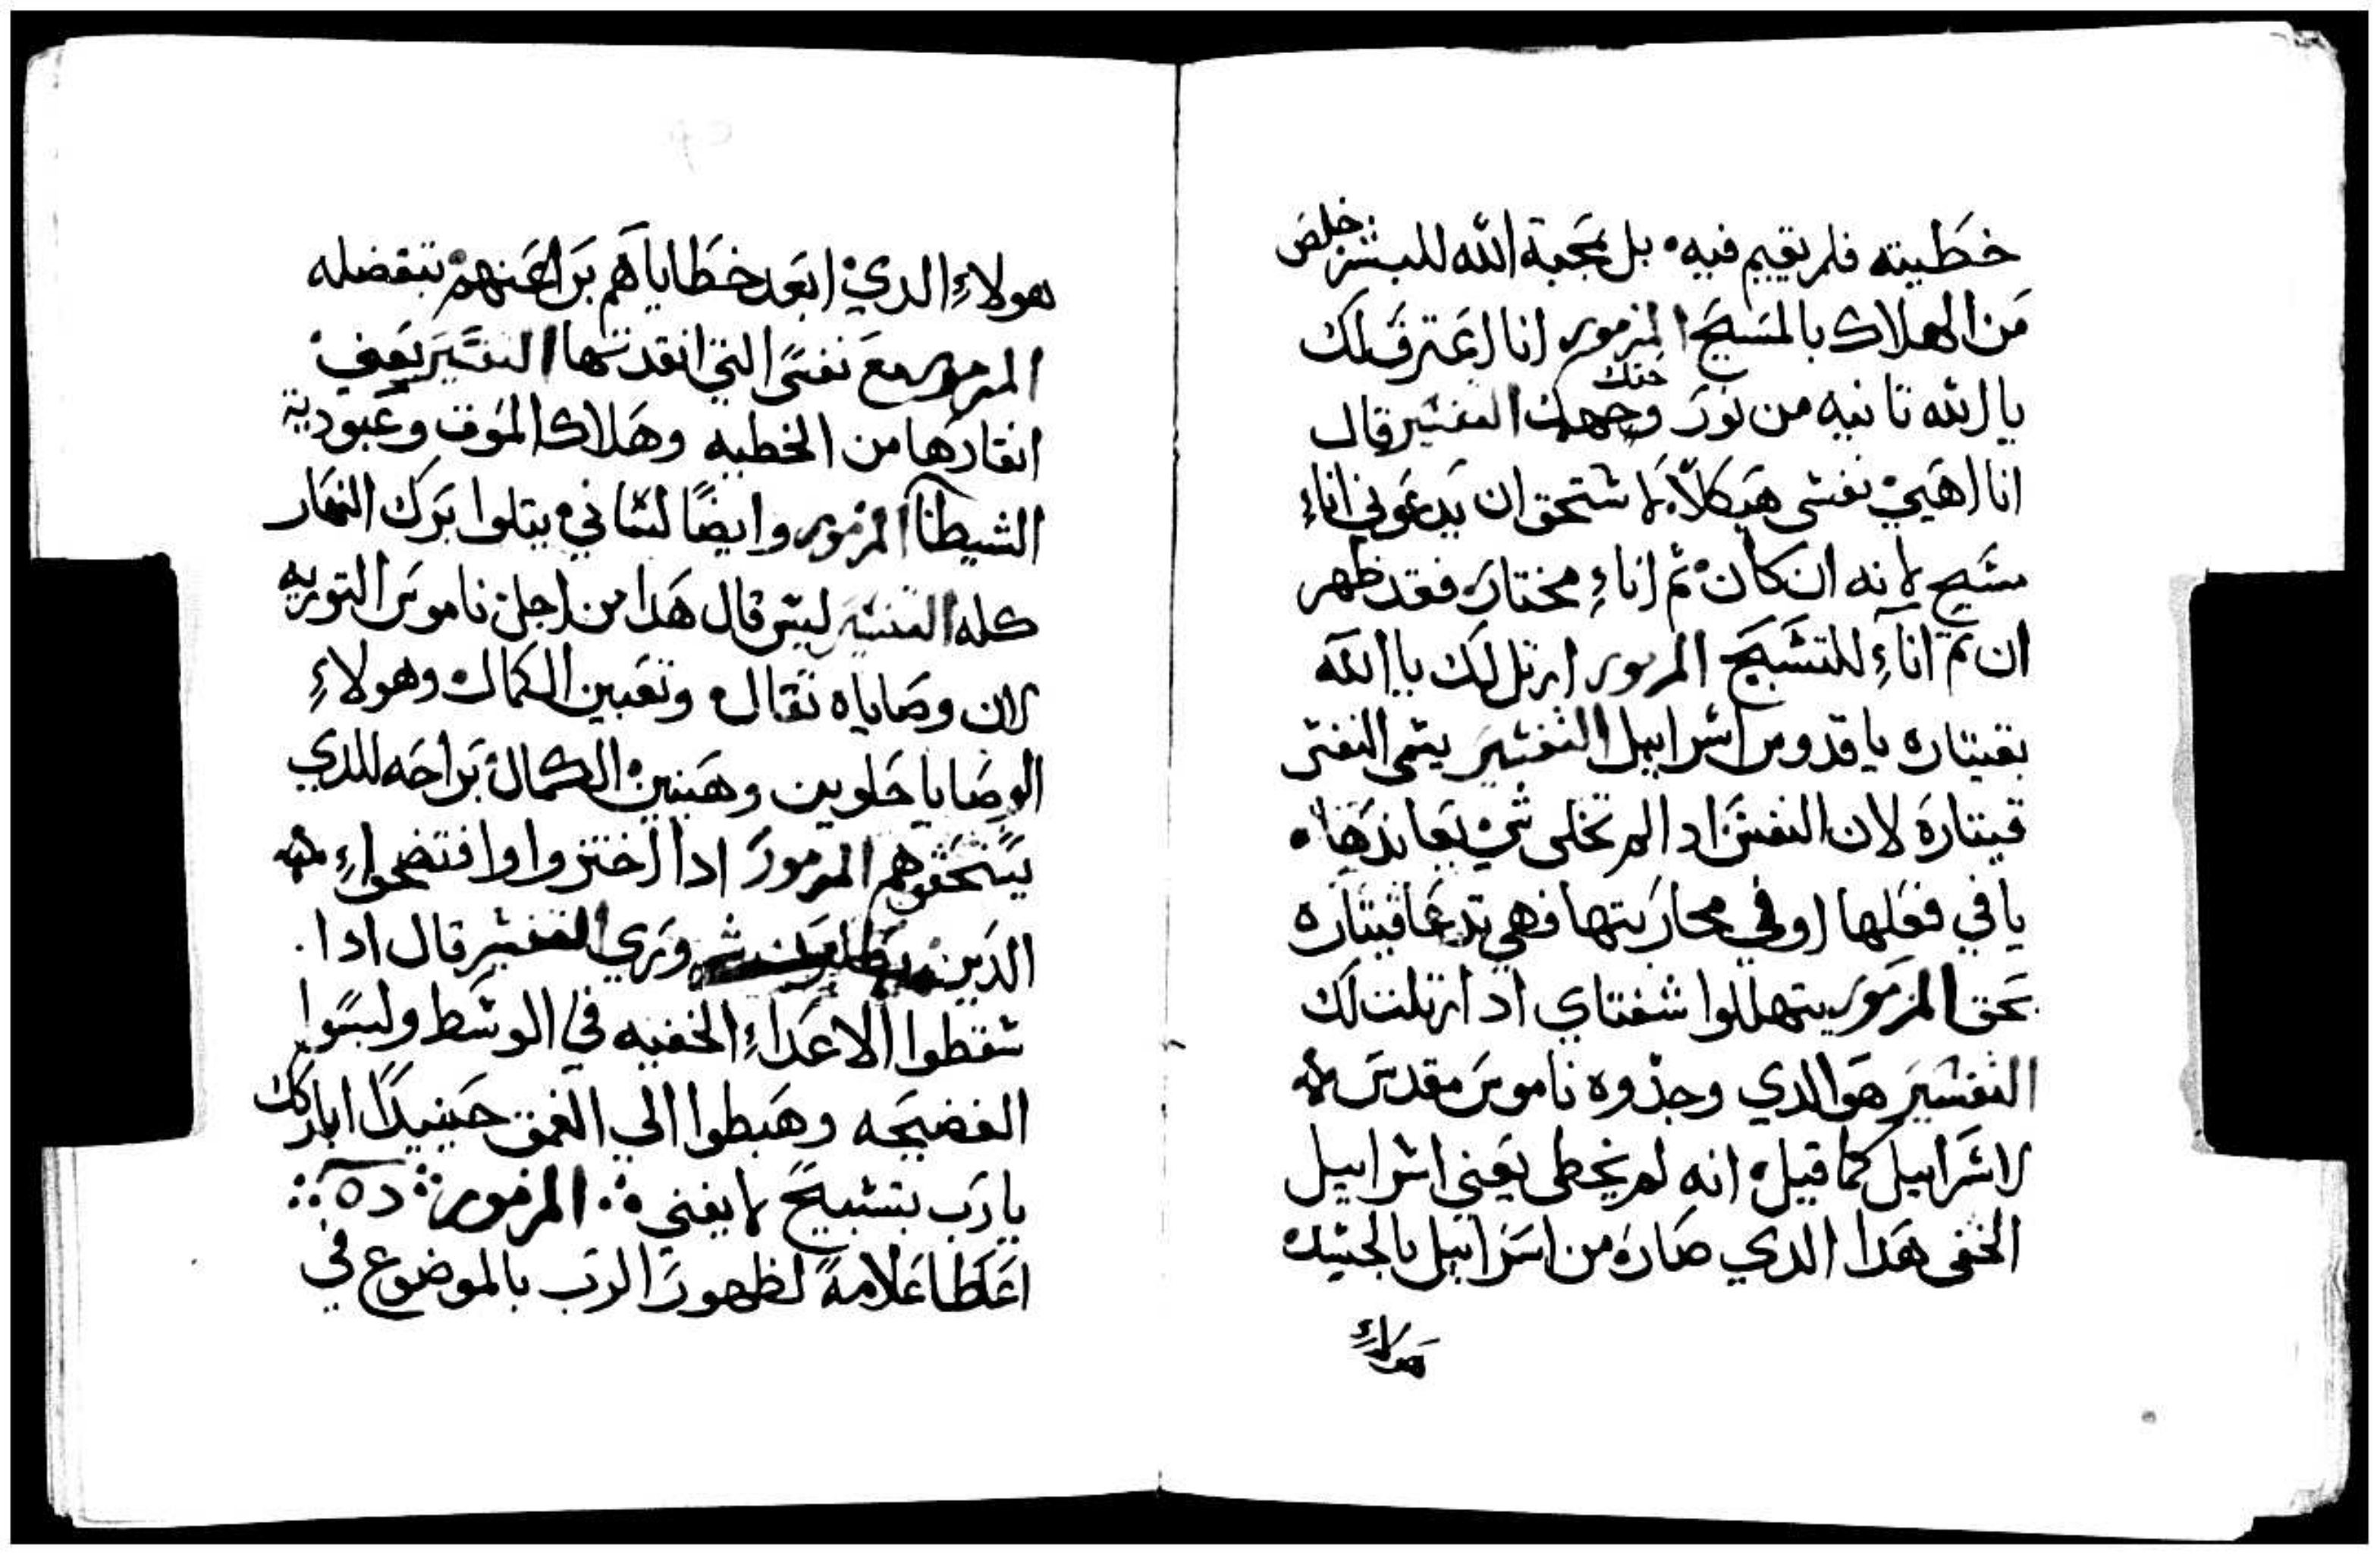 خطيته فلم يقيم فيه. بل بمحبة الله للبشر خلص
من الهلاك بالمسيح المزمور انا اعترف لك
يا الله تانيه من نور وجهك حتك التفسير قال
انا اهيي نفسي هيكلاً لاستحق ان يدعوني اناء
مسيح لانه ان كان ثم اناء مختار فقد ظهر
ان تم اناءٍ للتسبيح المزمور ارتل لك يا الله
بقيتاره يا قدوس اسراييل التفسير يسمى النفس
قيتاره لان النفس اد الم تخلى شي يعاندها.
يا في فعلها او في محاربتها فهي تدعا قيتاره
بحق المزمور يتهللوا شفتاي اد ارتلت لك
التفسير هو الدي وجدوه ناموس مقدس لانه
لاسراييل كما قيل انه لم يخطى يعني اسراييل
الخفى هدا الدي صار من اسراييل بالجسد
هولاءِ
هولاءِ الدي ابعد خطاياهم براعنهم بتفضله
المزمور مع نفسي التي انقدتها التفسير يعني
انقادها من الخطيه وهلاك الموت وعبودية
الشيطان المزمور وايضًا لساني يتلوا برك النهار
كله التفسير ليس قال هدا من اجل ناموس التوريه
لان وصاياه تقال وتعبين الكمال وهولاءِ
الوصايا حلوين وهينين الكمال براحه للدي
يستحقوهم المزمور ادا اختزوا وافتضحوا
الدين يطلبون شري التفسير قال ادا.
سقطوا الاعداءِ الخفيه في الوسط ولبسوا
الفضيحه وهبطوا الي العمق حينيدًا اباركك
يا رب بتسبيح لا يفني ∴ المزمور
اعطا علامةً لظهور الرب بالموضوع في